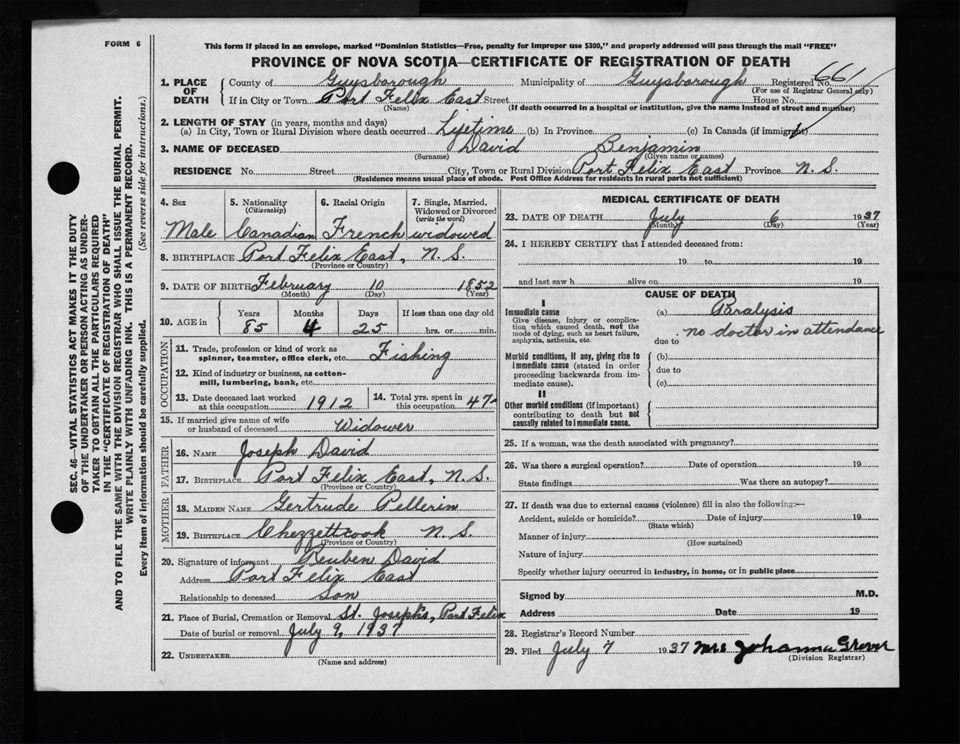 FORM 6
This form if placed in an envelope, marked "Dominion Statistics—Free, penalty for improper use $300," and properly addressed will pass through the mail "FREE"
PROVINCE OF NOVA SCOTIA—CERTIFICATE OF REGISTRATION OF DEATH
SEC. 46—VITAL STATISTICS ACT MAKES IT THE DUTY
OF THE UNDERTAKER OR PERSON ACTING AS UNDER-
TAKER TO OBTAIN ALL THE PARTICULARS REQUIRED
IN THE "CERTIFICATE OF REGISTRATION OF DEATH"
AND TO FILE THE SAME WITH THE DIVISION REGISTRAR WHO SHALL ISSUE THE BURIAL PERMIT.
WRITE PLAINLY WITH UNFADING INK. THIS IS A PERMANENT RECORD.
Every item of information should be carefully supplied. (See reverse side for instructions.)
1. PLACE OF DEATH County of Guysborough Municipality of Guysborough Registered No. 661
(For use of Registrar General only)
If in City or Town Port Felix East Street House No.
(Name) (If death occurred in a hospital or institution, give the name instead of street and number)
2. LENGTH OF STAY (in years, months and days)
(a) In City, Town or Rural Division where death occurred Lifetime (b) In Province (c) In Canada (if immigrant)
3. NAME OF DECEASED David Benjamin
(Surname) (Given name or names)
RESIDENCE No. Street City, Town or Rural Division Port Felix East Province N.S.
(Residence means usual place of abode. Post Office Address for residents in rural parts not sufficient)
4. Sex 5. Nationality (Citizenship) 6. Racial Origin 7. Single, Married, Widowed or Divorced (write the word)
Male Canadian French widowed
8. BIRTHPLACE Port Felix East, N.S.
(Province or Country)
9. DATE OF BIRTH February 10 1852
(Month) (Day) (Year)
10. AGE in Years Months Days If less than one day old
85 4 25 hrs. or min.
OCCUPATION
11. Trade, profession or kind of work as spinner, teamster, office clerk, etc. Fishing
12. Kind of industry or business, as cotton-mill, lumbering, bank, etc.
13. Date deceased last worked at this occupation 1912 14. Total yrs. spent in this occupation 47
15. If married give name of wife or husband of deceased Widower
FATHER
16. NAME Joseph David
17. BIRTHPLACE Port Felix East, N.S.
(Province or Country)
MOTHER
18. MAIDEN NAME Gertrude Pellerin
19. BIRTHPLACE Chezzetticook N.S.
(Province or Country)
20. Signature of informant Reuben David
Address Port Felix East
Relationship to deceased Son
21. Place of Burial, Cremation or Removal St. Joseph's, Port Felix
Date of burial or removal July 9, 1937
22. UNDERTAKER
(Name and address)
MEDICAL CERTIFICATE OF DEATH
23. DATE OF DEATH July 6 1937
(Month) (Day) (Year)
24. I HEREBY CERTIFY that I attended deceased from:
19 to 19
and last saw h alive on 19
CAUSE OF DEATH
I
Immediate cause (a) Paralysis
Give disease, injury or complica-
tion which caused death, not the
mode of dying, such as heart failure,
asphyxia, asthenia, etc.
no doctor in attendance
due to
Morbid conditions, if any, giving rise to
immediate cause (stated in order
proceeding backwards from im-
mediate cause).
(b)
due to
(c)
II
Other morbid conditions (if important)
contributing to death but not
causally related to immediate cause.
25. If a woman, was the death associated with pregnancy?
26. Was there a surgical operation? Date of operation 19
State findings Was there an autopsy?
27. If death was due to external causes (violence) fill in also the following:—
Accident, suicide or homicide? Date of injury 19
(State which)
Manner of injury
(How sustained)
Nature of injury
Specify whether injury occurred in industry, in home, or in public place
Signed by M.D.
Address Date 19
28. Registrar's Record Number
29. Filed July 7 1937 Mrs Johanna Grover
(Division Registrar)